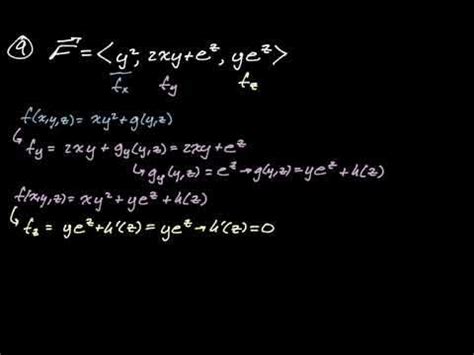 9 F⃗ = ⟨y², 2xy+e^z, ye^z⟩
f_x f_y f_z
f(x,y,z) = xy² + g(y,z)
↳ f_y = 2xy + g_y(y,z) = 2xy + e^z
↳ g_y(y,z) = e^z → g(y,z) = ye^z + h(z)
f(x,y,z) = xy² + ye^z + h(z)
↳ f_z = ye^z + h'(z) = ye^z → h'(z) = 0